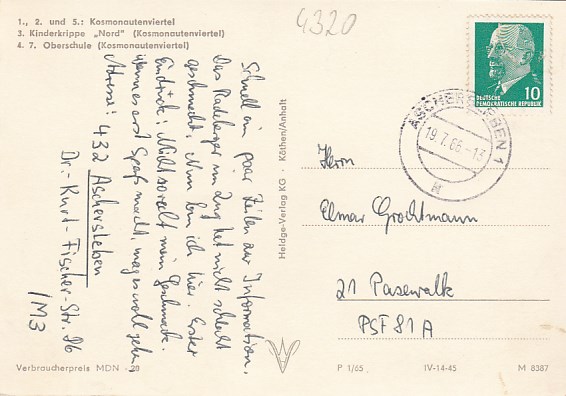 1., 2. und 5.: Kosmonautenviertel
3. Kinderkrippe „Nord" (Kosmonautenviertel)
4. 7. Oberschule (Kosmonautenviertel)
4320
Schnell ein paar Zeilen zur Information.
Das Radeberger im Zug hat nicht schlecht
geschmeckt. Nun bin ich hier. Erster
Eindruck: Nicht soweit mein Geschmack.
Wenn es erst Spaß macht, mag es wohl gehen.
Adresse: 432 Aschersleben
Dr.-Kurt-Fischer-Str. 26
/M3
Heldge-Verlag KG · Köthen/Anhalt
10
DEUTSCHE
DEMOKRATISCHE REPUBLIK
ASCHERSLEBEN 1
19.7.66-13
Herrn
Elmar Grochtmann
21 Pasewalk
PSF 81 A
Verbraucherpreis MDN -,20
P 1/65
IV-14-45
M 8387